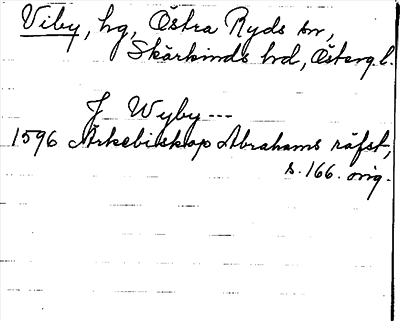 Viby, hg, Östra Ryds sn,
Skärkinds hd, Östergl.
J Wyby ---
1596 Ärkebiskop Abrahams räfst,
s. 166. orig.